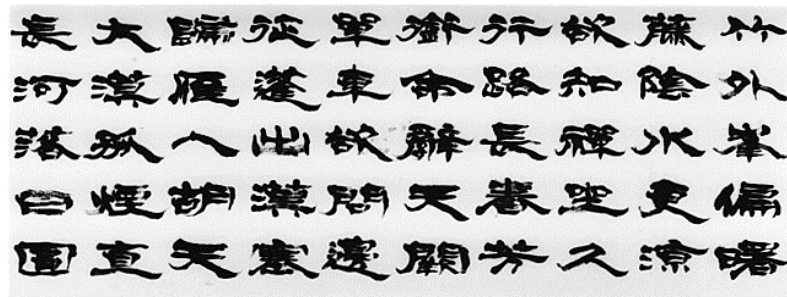 竹外峯偏曙
藤陰水更涼
欲知禪坐久
行路長春芳
銜命辭天闕
單車欲問邊
征蓬出漢塞
歸雁入胡天
大漠孤煙直
長河落日圓